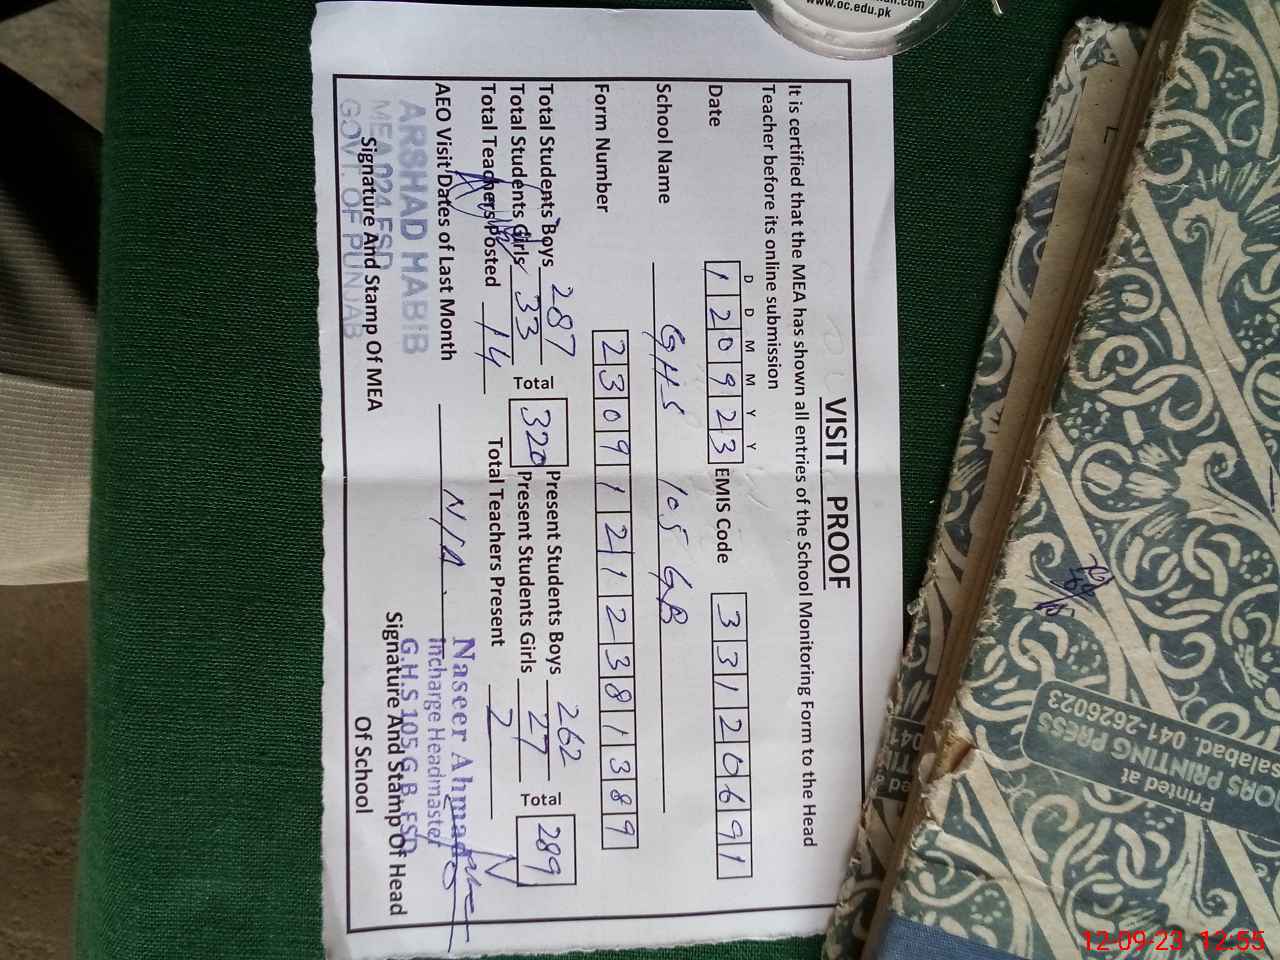 VISIT PROOF
It is certified that the MEA has shown all entries of the School Monitoring Form to the Head
Teacher before its online submission
D D M M Y Y
Date 1 2 0 9 2 3 EMIS Code 3 3 1 2 0 6 9 1
School Name GHS 105 GB
Form Number 2 3 0 9 1 2 1 2 3 8 1 3 8 9
Total Students Boys 287 Present Students Boys 262
Total 320 Total 289
Total Students Girls 33 Present Students Girls 27
Total Teachers Posted 14 Total Teachers Present 2
AEO Visit Dates of Last Month N/A
ARSHAD HABIB
MEA 024 FSD
GOVT. OF PUNJAB
Signature And Stamp Of MEA
Naseer Ahmad
Incharge Headmaster
G.H.S 105 G.B FSD
Signature And Stamp Of Head
Of School
www.oc.edu.pk
Printed at
ORS PRINTING PRESS
salabad. 041-2626023
12-09-23 12:55